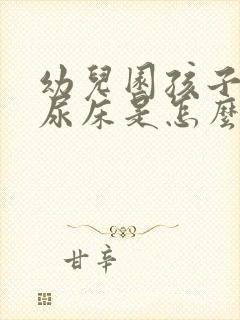 幼兒園孩子
尿床是怎麼
甘辛